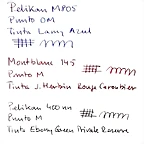 Pelikan M805
Punto OM
Tinta Lamy Azul
Montblanc 145
Punto M
Tinta J. Herbin Rouge Caroubier
Pelikan 400nn
Punto M
Tinta Ebony Green Private Reserve